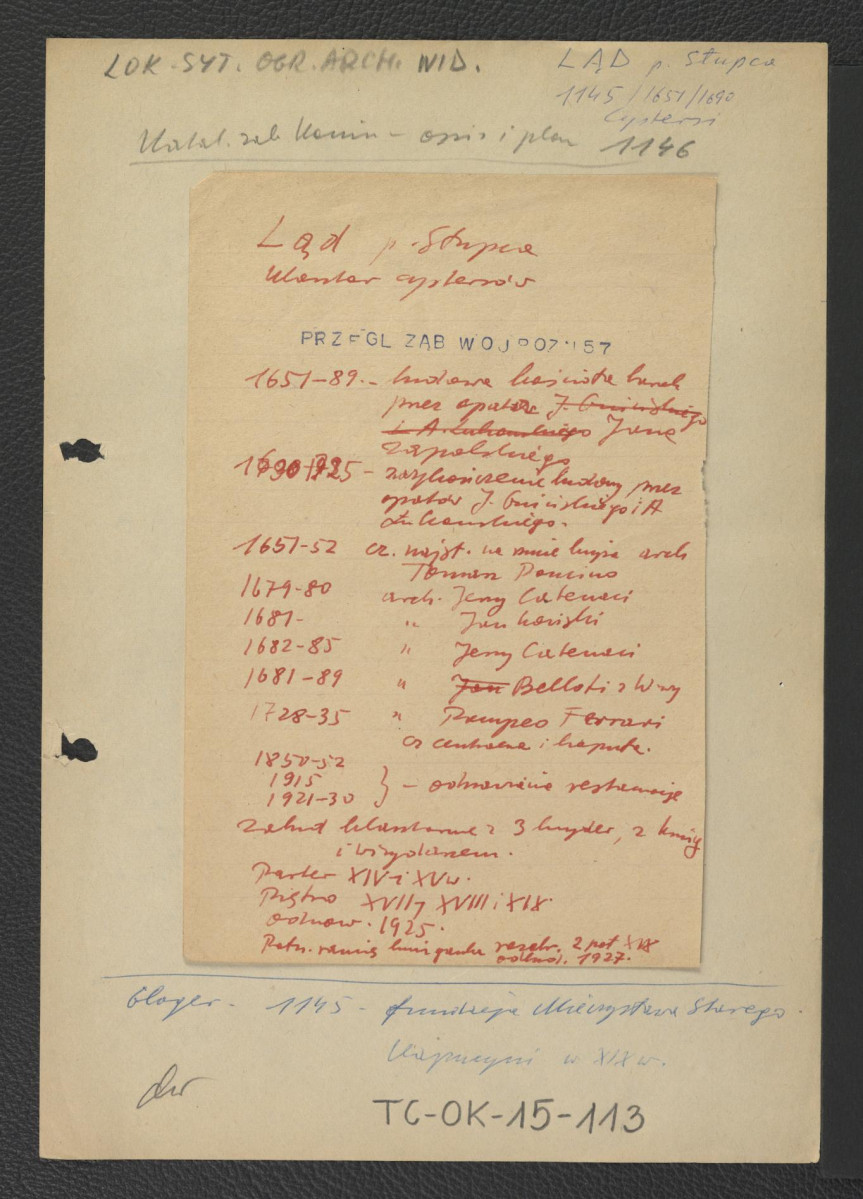 LOK-SYT. OGR. ARCH. WID.
LĄD p. Słupca
1145/1651/1690
Cystersi
Katal. zab. Konin – opis i plan 1146
Ląd p. Słupca
Klasztor cystersów
PRZEGL ZAB WOJ POZN 57
1651-89.- budowa kościoła barok
przez opatów J. Gnińskiego
i A. Łukomskiego Jana
Zapolskiego
1690-1725 – zakończenie budowy przez
opatów J. Gnińskiego i A
Łukomskiego.
1651-52 cz. najst. arch
Tomasz Poncino
1679-80 arch. Jerzy Catenaci
1681- " Jan Koński
1682-85 " Jerzy Catenaci
1681-89 " Jan Belloti z W-wy
1728-35 " Pompeo Ferrari
cz centralna i kopuła.
1850-52
1915
1921-30 } – odnawianie restauracje
Zabud klasztorne z 3 skrzydeł, z
i wirydarzem.
Parter XIV i XV w.
Piętro XVII, XVIII i XIX.
odnow. 1925.
Połn. ramię krużganka rozebr. 2 poł XIX
odbud. 1927.
Gloger - 1145 - fundacja Mieczysława Starego.
Kapucyni w XIX w.
TC-OK-15-113